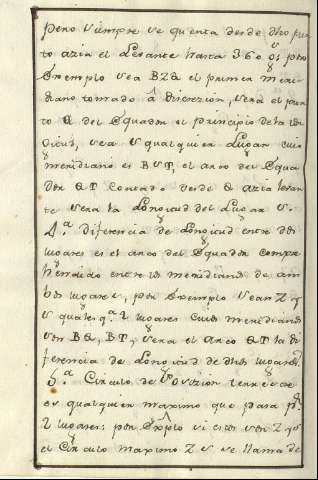 pero siempre se quenta desde dho pun
to azia el Levante hasta 360 gs por
Exemplo sea BZQ el primer meri
diano tomado â discrezion, sera el pun
to Q del Equador el principio de la lon
gitud, sea S qualquier Lugar cuio
meridiano es BST, el arco del Equa
dor QT Contado desde Q azia levan
te sera la Longitud del Lugar S.
4.ª Diferencia de Longitud entre dos
lugares es el arco del Equador Compre
hendido entre los meridianos de am
bos lugares, por Exemplo sean Z y
S qualesq.ª 2 lugares cuios meridianos
son BQ, BT, sera el arco QT la di
ferencia de Longitud de dhos lugares
5.ª Circulo de Posizion terrestre
es qualquier maximo que pasa pr.
2 lugares: por Explo si estos son Z y S
el Circulo maximo Z S se llama de